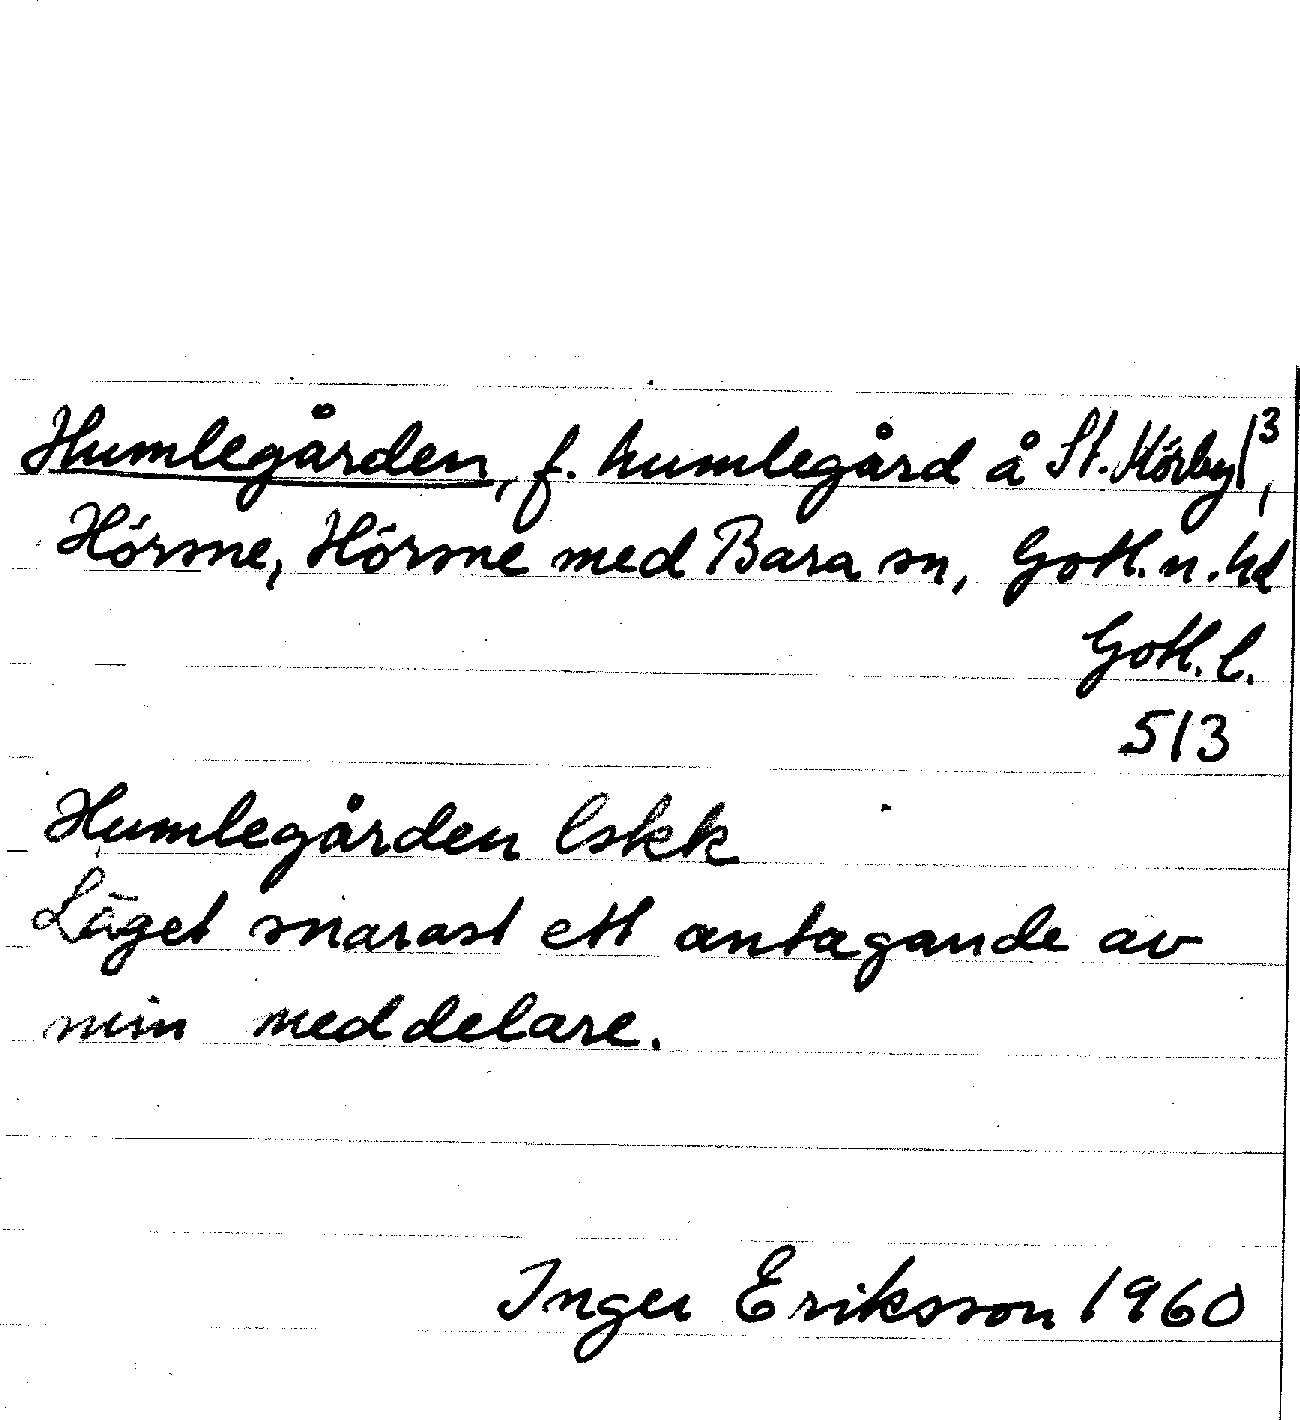 Humlegården, f. humlegård å St. Mörby 1³,
Hörsne, Hörsne med Bara sn, Gotl. n. hd
Gotl. l.
513
Humlegården lskk
Läget snarast ett antagande av
min meddelare.
Inger Eriksson 1960